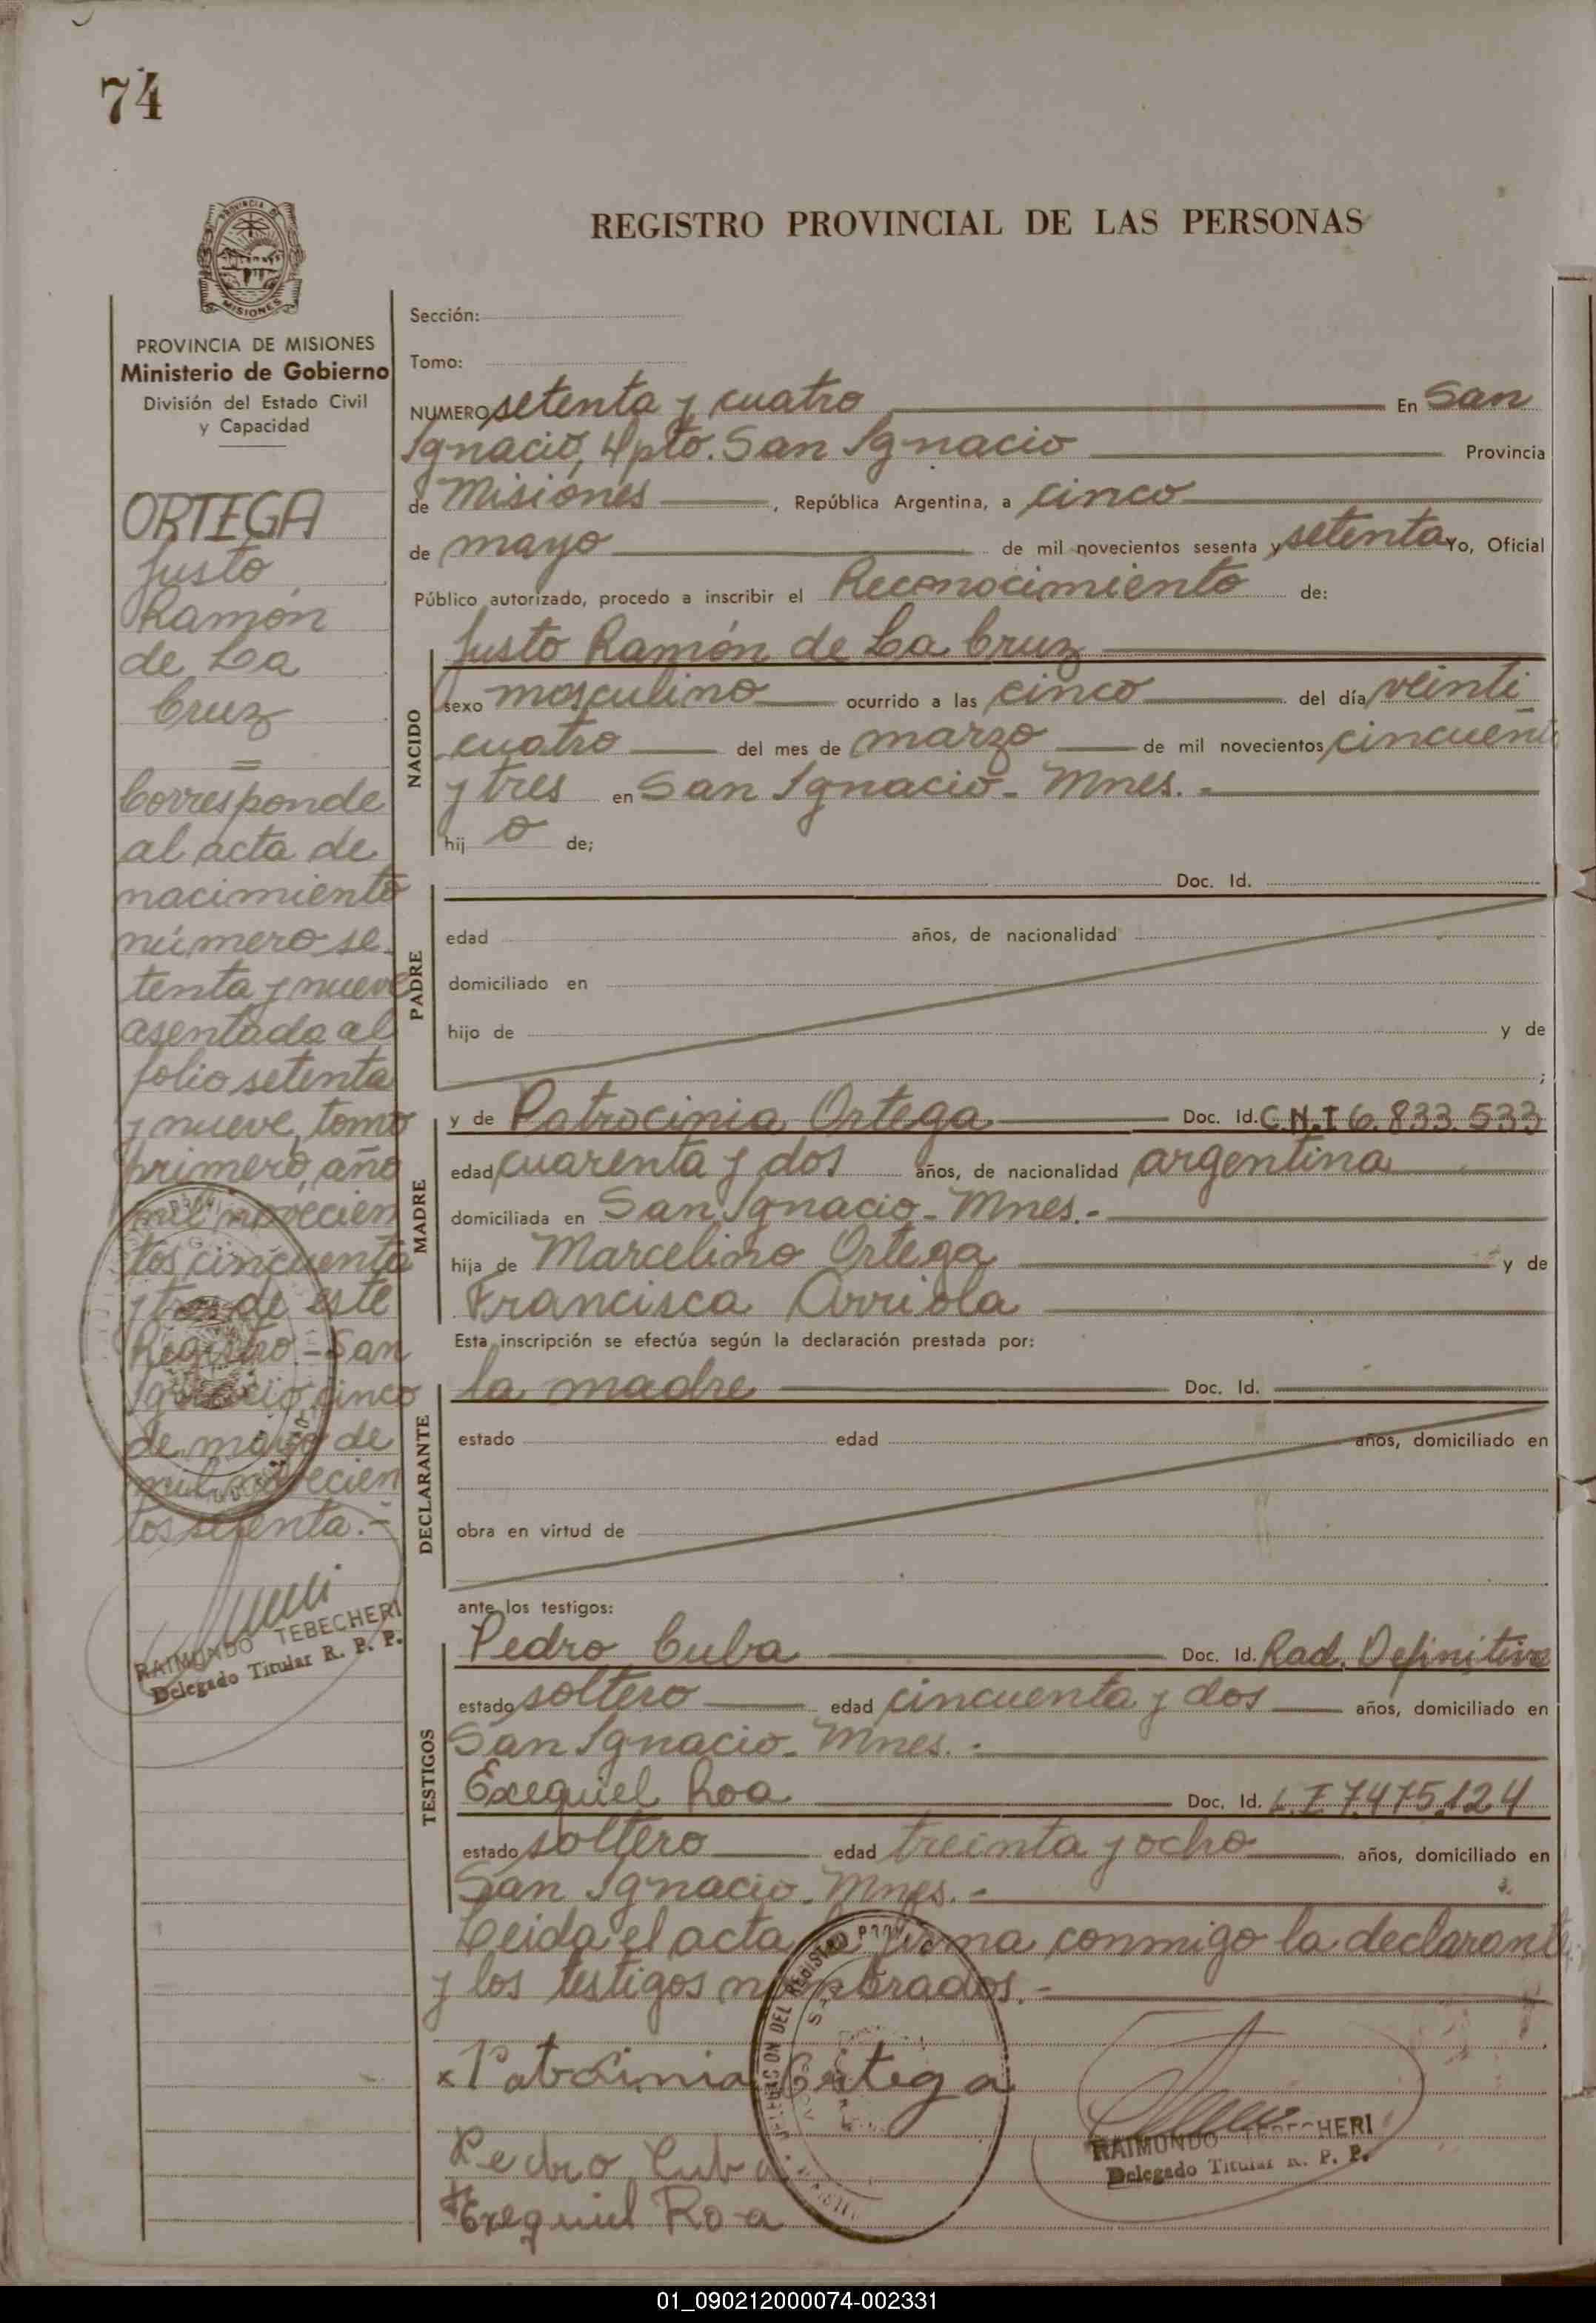 74
PROVINCIA DE
MISIONES
REGISTRO PROVINCIAL DE LAS PERSONAS
PROVINCIA DE MISIONES
Ministerio de Gobierno
División del Estado Civil
y Capacidad
ORTEGA
Justo
Ramón
de La
Cruz
=
Corresponde
al acta de
nacimiento
número se-
tenta y nueve
asentada al
folio setenta
y nueve, tomo
primero, año
mil novecien
tos cincuenta
y tres de este
Registro.- San
Ignacio, cinco
de mayo de
mil novecien
tos setenta.-
RAIMONDO TEBECHERI
Delegado Titular R. P. P.
Sección:
Tomo:
NUMERO setenta y cuatro En San
Ignacio, Dpto. San Ignacio Provincia
de Misiones, República Argentina, a cinco
de mayo de mil novecientos sesenta y setenta Yo, Oficial
Público autorizado, procedo a inscribir el Reconocimiento de:
NACIDO
Justo Ramón de La Cruz
sexo masculino ocurrido a las cinco del día veinti
cuatro del mes de marzo de mil novecientos cincuent
y tres en San Ignacio - Mnes.-
hij o de;
PADRE
Doc. Id.
edad años, de nacionalidad
domiciliado en
hijo de y de
;
MADRE
y de Patrocinia Ortega Doc. Id. C.N.I 6.833.533
edad cuarenta y dos años, de nacionalidad argentina
domiciliada en San Ignacio - Mnes.-
hija de Marcelino Ortega y de
Francisca Arriola
Esta inscripción se efectúa según la declaración prestada por:
DECLARANTE
la madre Doc. Id.
estado edad años, domiciliado en
obra en virtud de
ante los testigos:
TESTIGOS
Pedro Cuba Doc. Id. Rad. Definitiva
estado soltero edad cincuenta y dos años, domiciliado en
San Ignacio - Mnes.-
Exequiel Roa Doc. Id. L.I 7.475.124
estado soltero edad treinta y ocho años, domiciliado en
San Ignacio - Mnes.-
Leida el acta la firma conmigo la declarante
y los testigos nombrados.-
x Patrocinia Ortega
Pedro Cuba
Exequiel Roa
DELEGACION DEL REGISTRO PROV
RAIMONDO TEBECHERI
Delegado Titular R. P. P.
01_090212000074-002331